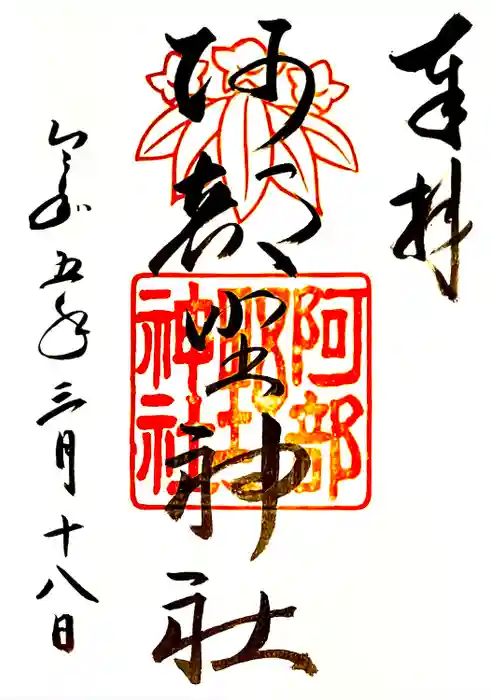 奉拝
阿部野神社
令和五年三月十八日
阿部
野
神社